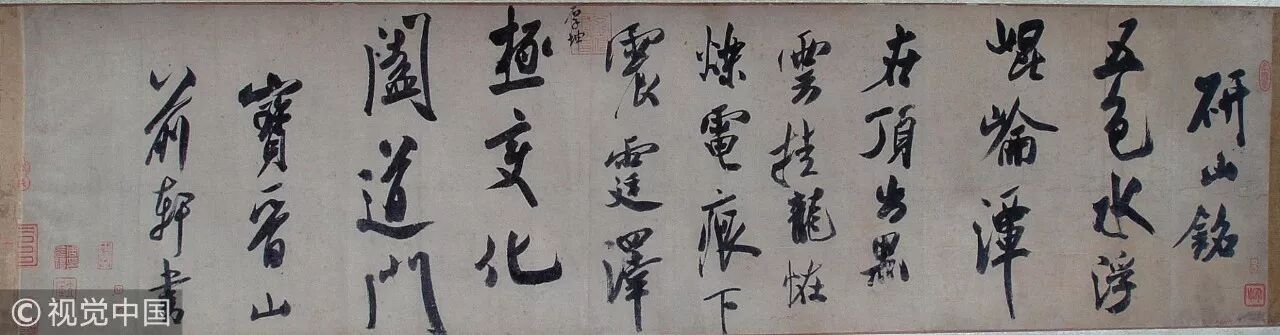 研山銘
五色水浮
崐崘潭
在頂出黑
雲挂龍恠
爍電痕下
震霆澤
厚坤
極變化
闔道門
寶晉山
前軒書
©视觉中国